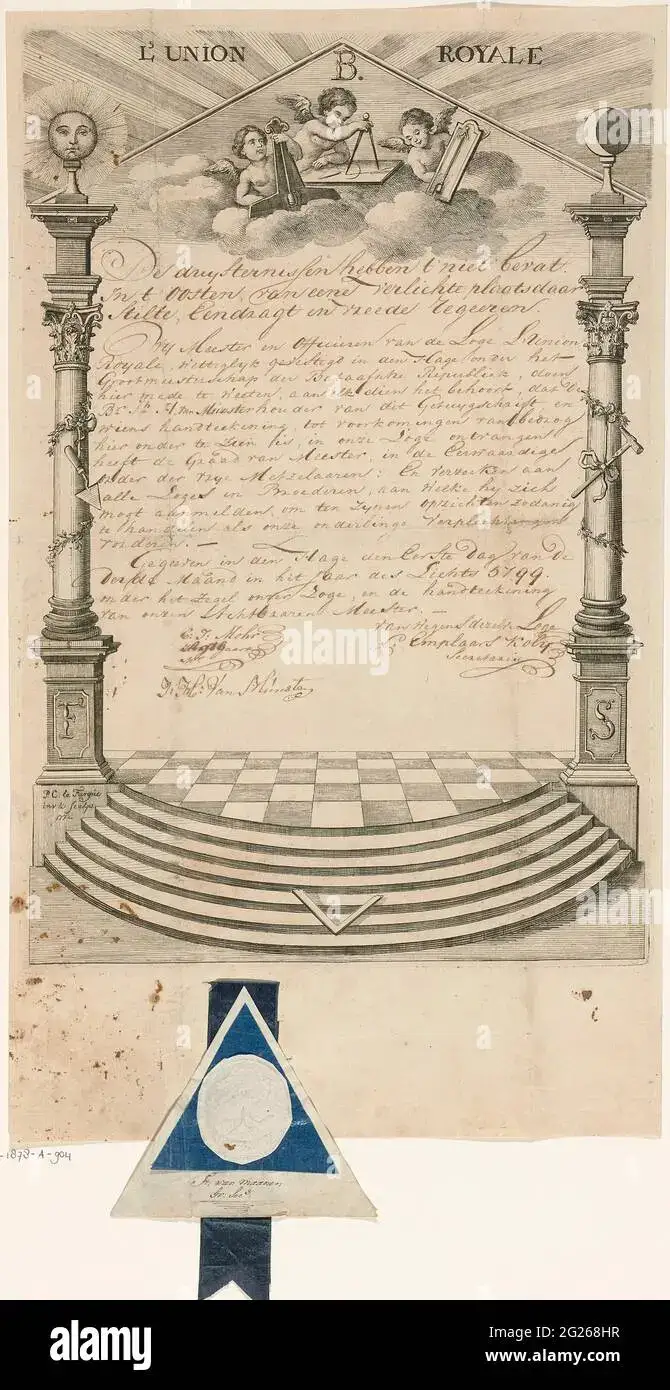 L'UNION ROYALE
B.
De duysternissen hebben 't niet bevat.
In 't Oosten, van eene verlichte plaats daar
Stilte, Eendragt en vreede regeeren.
Wy Meester en Officieren van de Loge L'Union
Royale, wettiglyk gevestigd in den Hage onder het
Grootmeesterschap der Bataafsche Republiek, doen
hier mede te weeten, aan elk dien het behoort, dat de
Br. Van Munster houder van dit Getuygschrift, en
wiens handteekening, tot voorkomingen van bedrog
hier onder te zien is, in onze Loge ontvangen
heeft de Graad van Meester, in de Eerwaardige
order der vrye Metzelaaren: En verzoeken aan
alle Loges en Broederen, aan welke hy zich
mogt aanmelden, om ten zynen opzichten zodanig
te handelen als onze onderlinge Verplichtingen
vorderen. —
Gegeeven in den Hage den Eerste Dag van De
Derde Maand in het Jaar des Lichts 5799.
onder het Zegel onser Loge, en de handteekening
van onzen Achtbaaren Meester. —
Van Wegens dezelve Loge
C. F. Mohr
Secretaris
Van Munster
F
S
P.C. la Fargue
inv & sculps
F. van Maanen
Gr: Sec:
-1878-A-904
alamy
Image ID: 2G268HR
www.alamy.com